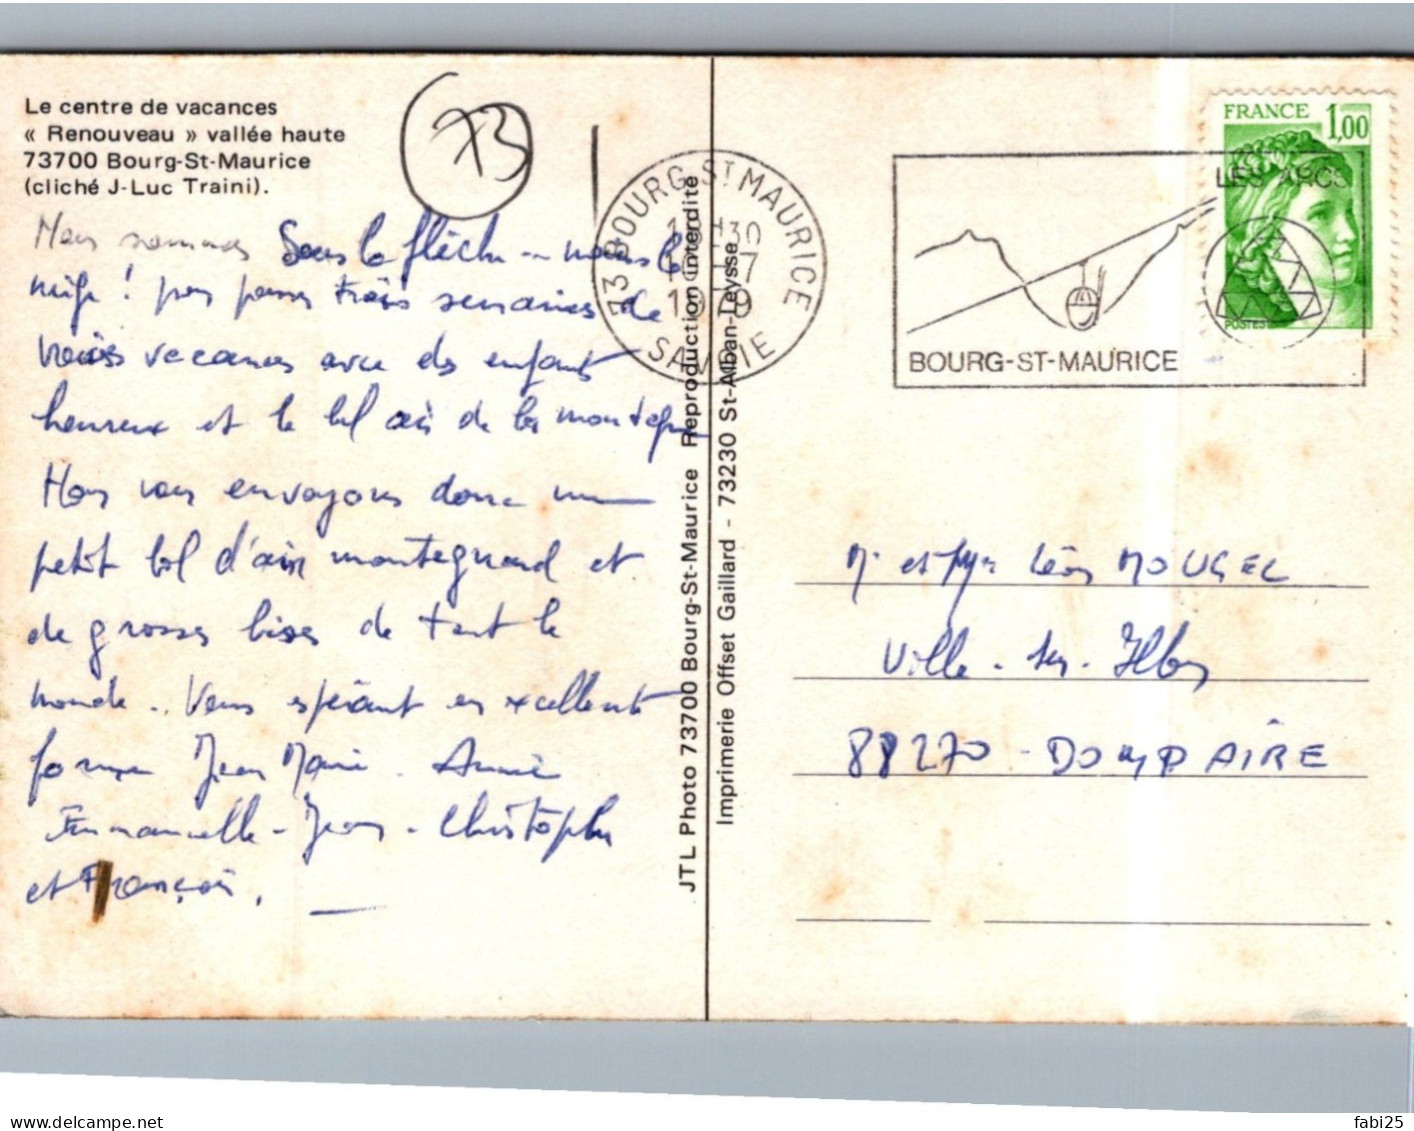 Le centre de vacances
« Renouveau » vallée haute
73700 Bourg-St-Maurice
(cliché J-Luc Traini).
73
Nous sommes sous la flèche - sous la
neige ! pour passer trois semaines de
vraies vacances avec des enfants
heureux et le bel air de la montagne
Nous vous envoyons donc un
petit bol d'air montagnard et
de grosses bises de tout le
monde.. Vous espérant en excellente
forme Jean Marie - Annie
Emmanuelle - Jean - Christophe
et François.
JTL Photo 73700 Bourg-St-Maurice Reproduction interdite
Imprimerie Offset Gaillard - 73230 St-Alban-Leysse
73 BOURG-ST MAURICE
30
-7
1979
SAVOIE
LES ARCS
BOURG-ST-MAURICE
FRANCE 1,00
POSTES
M. et Mme Léon MOUGEL
Ville-sur-Illon
88270 - DOMPAIRE
www.delcampe.net
fabi25